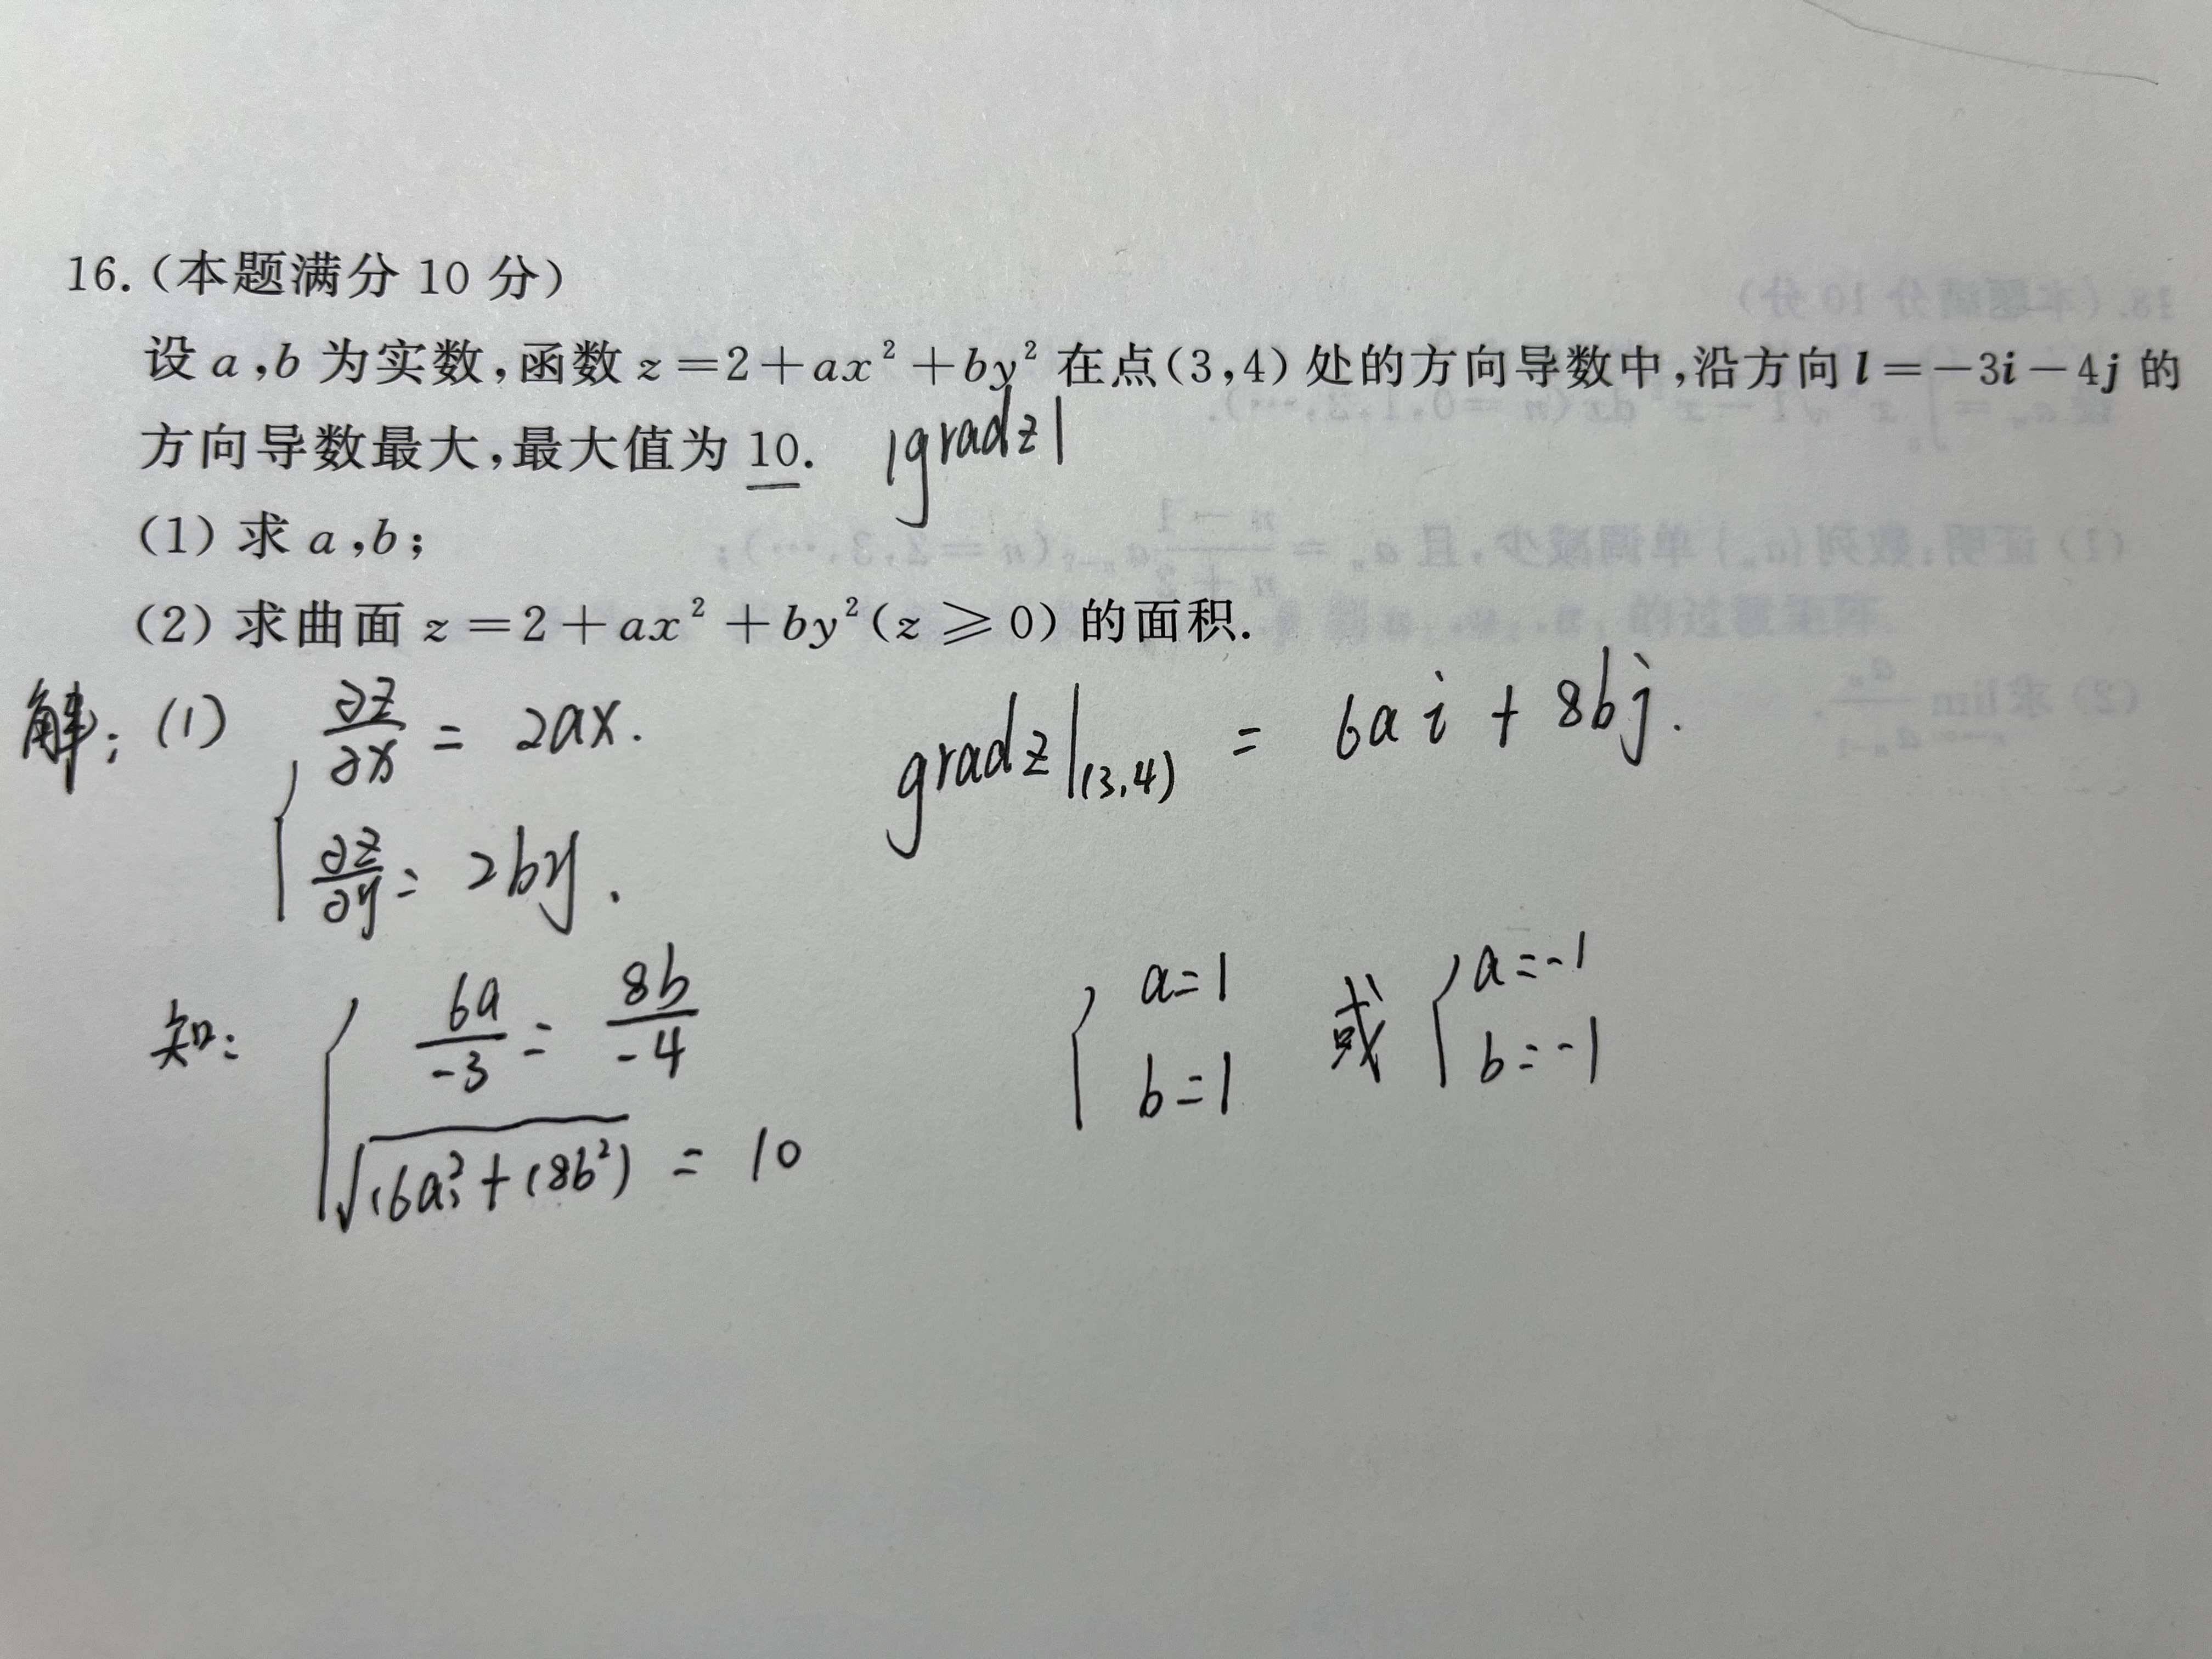 16.(本题满分 10 分)
设 a,b 为实数,函数 z=2+ax²+by² 在点(3,4) 处的方向导数中,沿方向 l=-3i-4j 的
方向导数最大,最大值为 10.
|gradz|
(1) 求 a,b;
(2) 求曲面 z=2+ax²+by²(z≥0) 的面积.
解:(1) ∂z/∂x = 2ax. gradz|(3,4) = 6ai + 8bj.
∂z/∂y = 2by.
知: 6a/-3 = 8b/-4 { a=1 或 { a=-1
b=1 b=-1
√(6a)²+(8b²) = 10